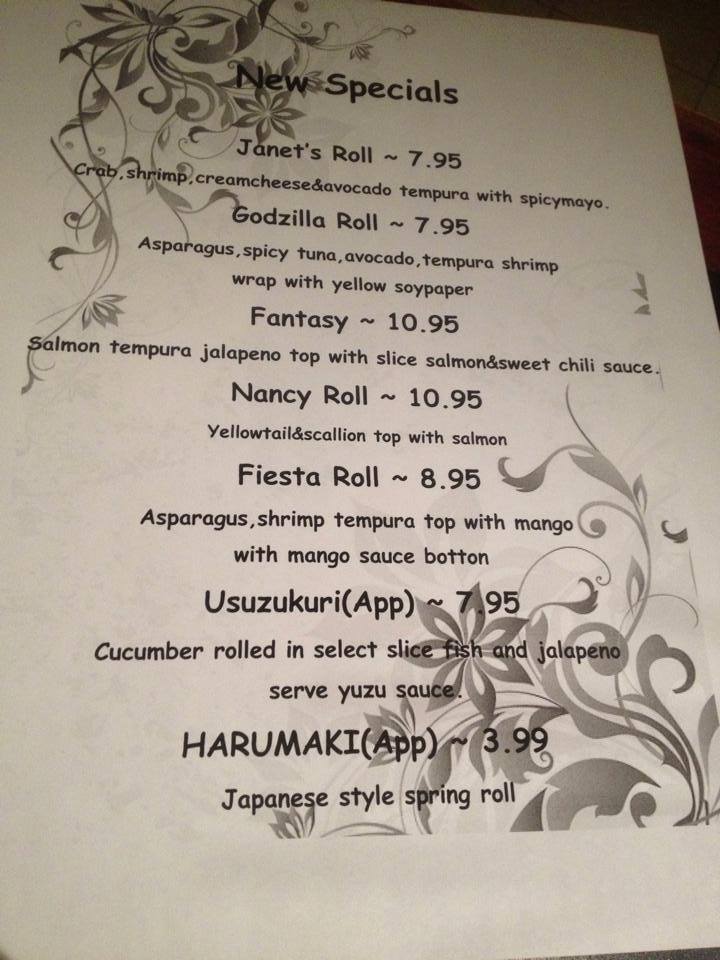 New Specials
Janet's Roll ~ 7.95
Crab,shrimp,creamcheese&avocado tempura with spicymayo.
Godzilla Roll ~ 7.95
Asparagus,spicy tuna,avocado,tempura shrimp
wrap with yellow soypaper
Fantasy ~ 10.95
Salmon tempura jalapeno top with slice salmon&sweet chili sauce.
Nancy Roll ~ 10.95
Yellowtail&scallion top with salmon
Fiesta Roll ~ 8.95
Asparagus,shrimp tempura top with mango
with mango sauce botton
Usuzukuri(App) ~ 7.95
Cucumber rolled in select slice fish and jalapeno
serve yuzu sauce.
HARUMAKI(App) ~ 3.99
Japanese style spring roll